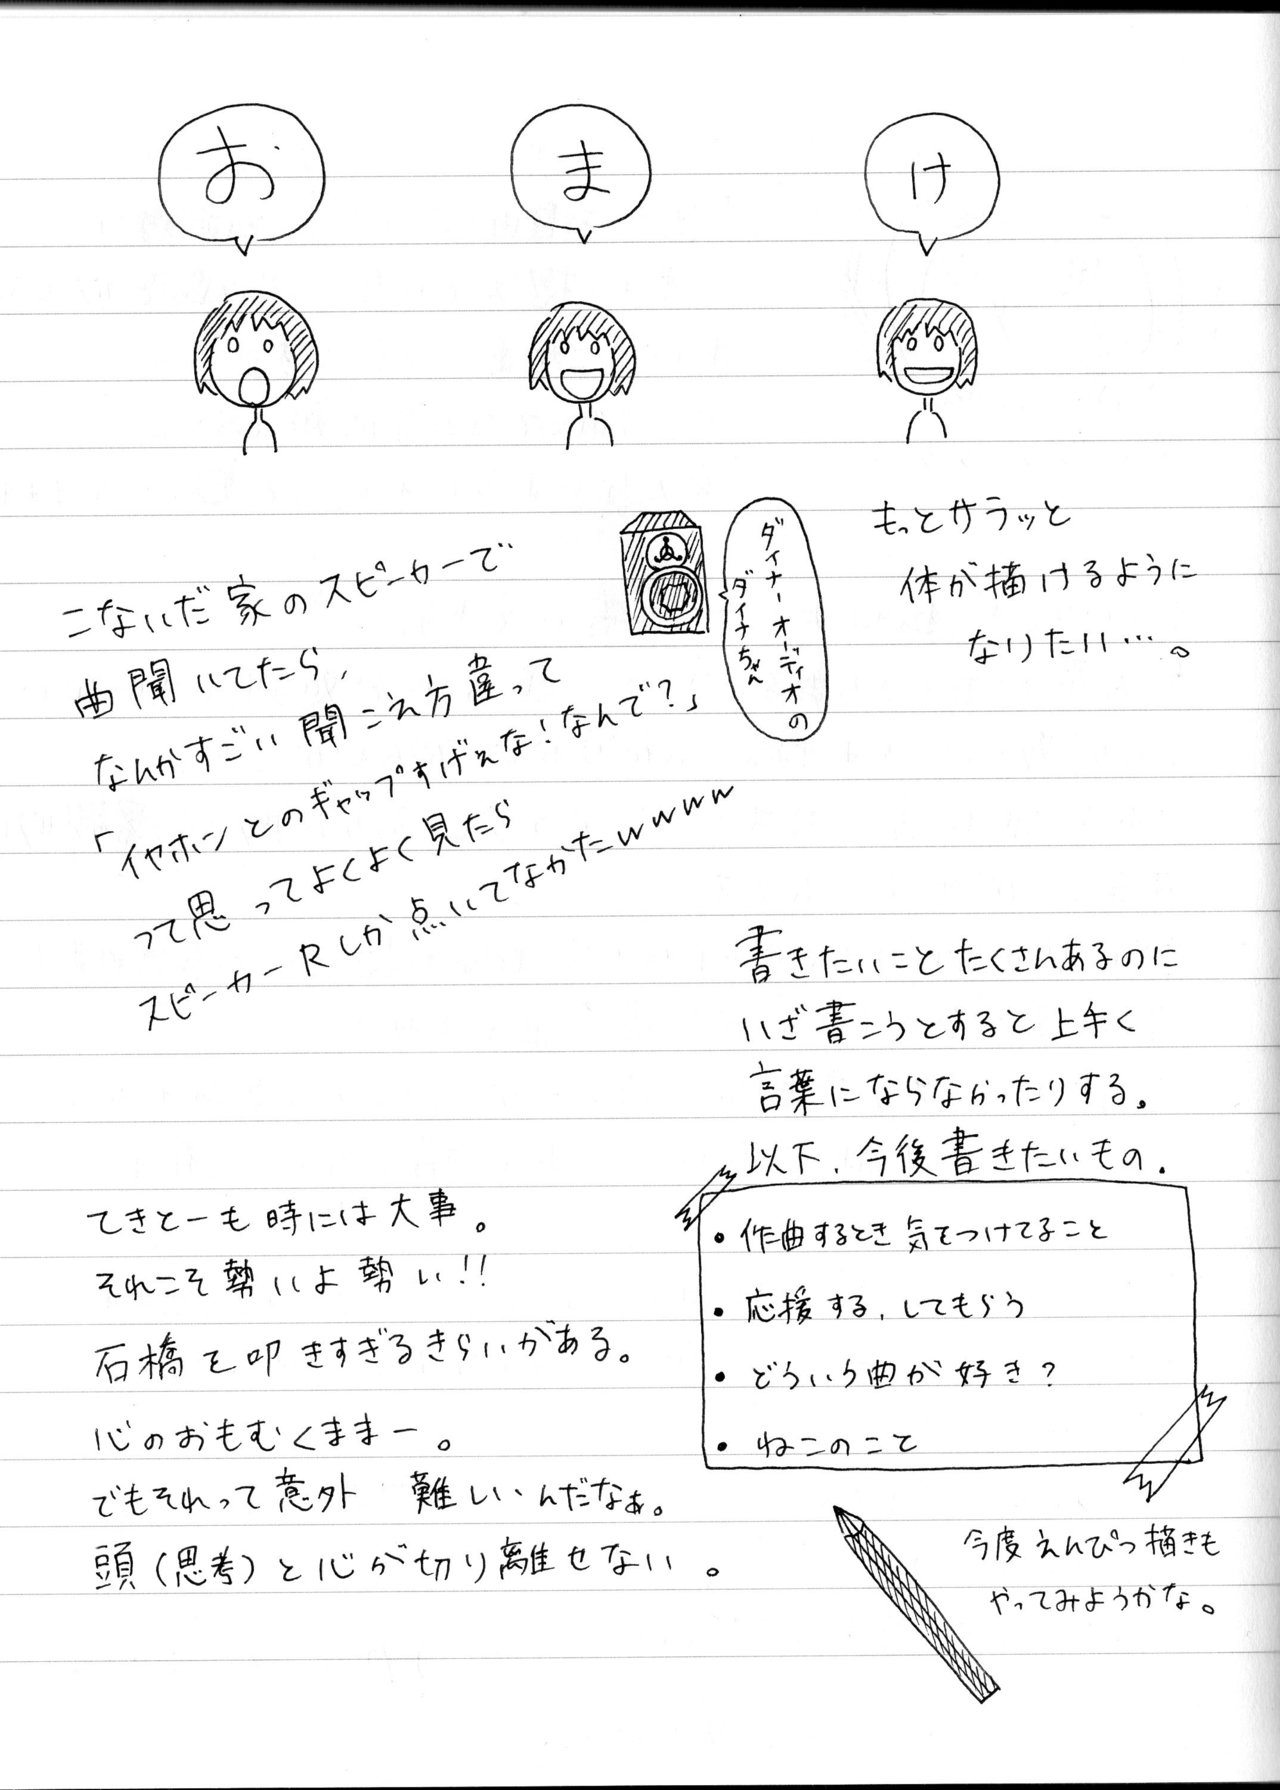 お
ま
け
もっとサラッと
体が描けるように
なりたい…。
ダイナーオーディオの
ダイナちゃん
こないだ家のスピーカーで
曲聞いてたら、
なんかすごい聞こえ方違って
「イヤホンとのギャップすげぇな!なんで?」
って思ってよくよく見たら
スピーカーRしか点いてなかたwwww
書きたいことたくさんあるのに
いざ書こうとすると上手く
言葉にならなかったりする。
以下、今後書きたいもの.
• 作曲するとき気をつけてること
• 応援する、してもらう
• どういう曲が好き?
• ねこのこと
てきとーも時には大事。
それこそ勢いよ勢い!!
石橋を叩きすぎるきらいがある。
心のおもむくままー。
でもそれって意外 難しいんだなぁ。
頭(思考)と心が切り離せない。
今度えんぴつ描きも
やってみようかな。